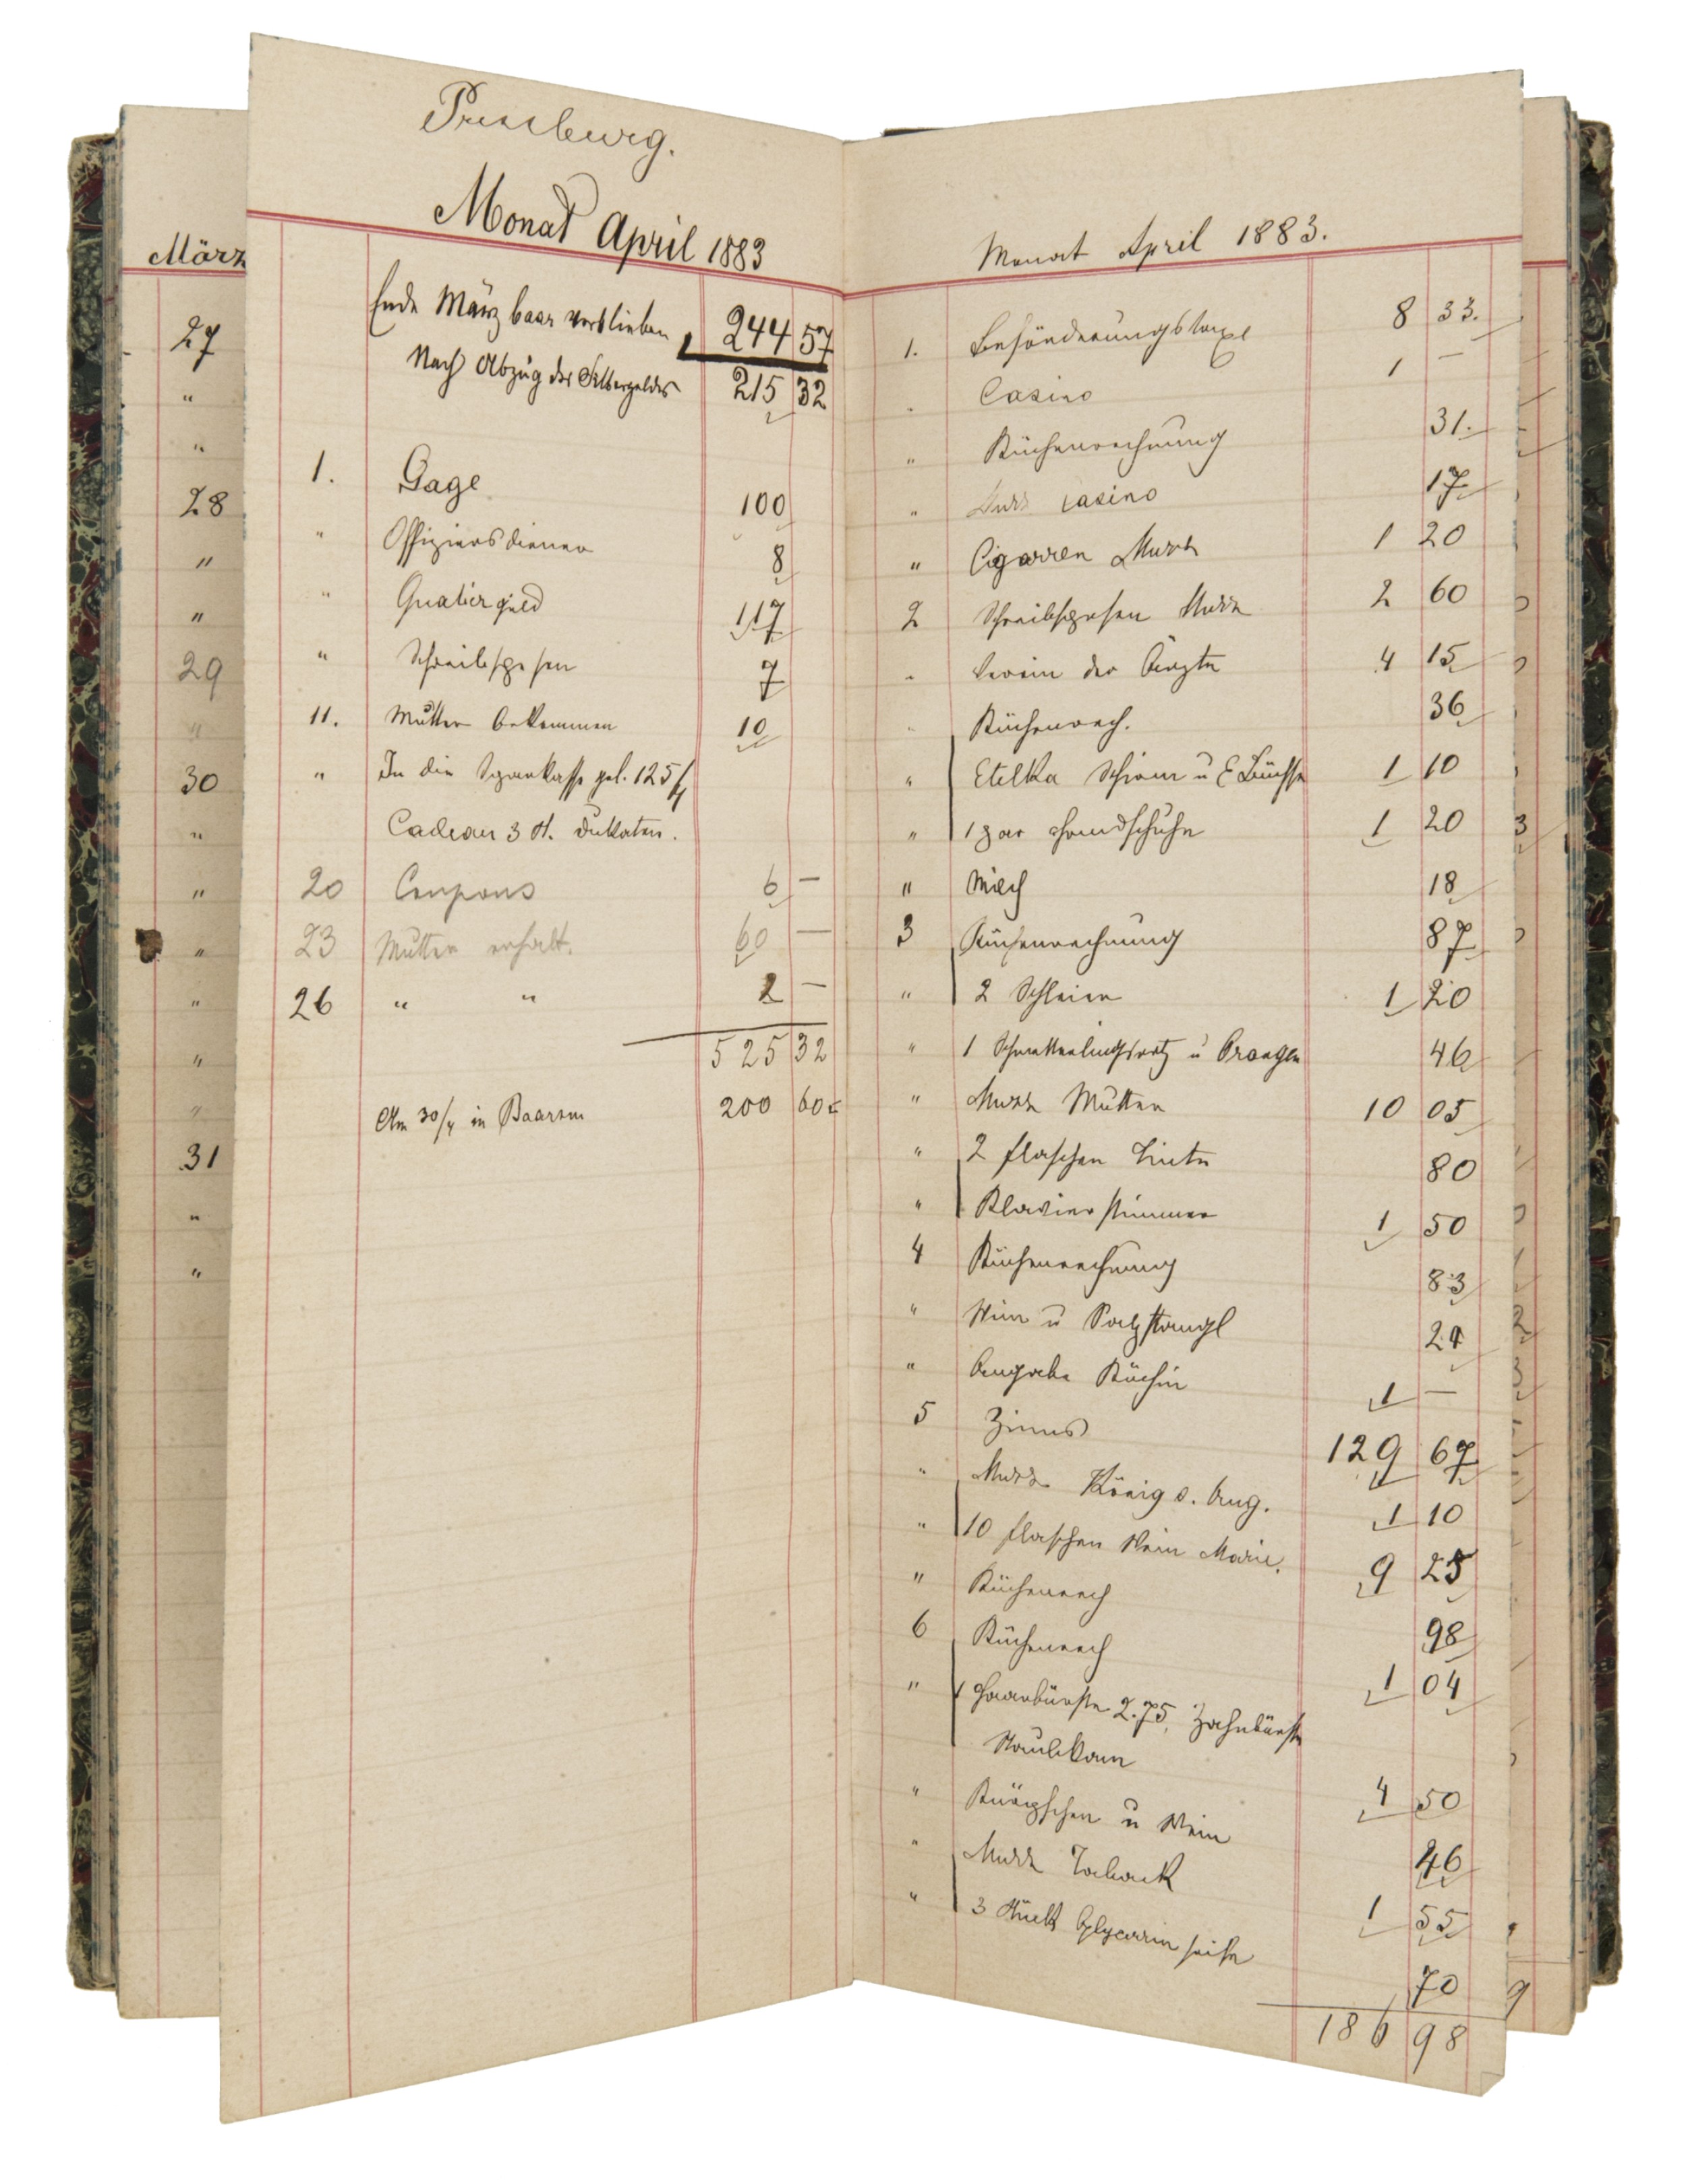 Pressburg.
Monat April 1883
Ende März baar verblieben 244 57
Nach Abzug des Silbergeldes 215 32
1. Gage 100
" Offiziersdiener 8
" Quatiergeld 117
" Schreibspesen 7
11. Mutter bekommen 10
" In die Sparkasse gel. 125 f
Cadeau 3 St. Dukaten.
20 Coupons 6 —
23 Mutter erhalt. 60 —
26 " " 2 —
525 32
Am 30/4 in Baarem 200 60
März
27
"
"
28
"
"
29
"
30
"
"
"
"
"
"
31
"
"
Monat April 1883.
1. Beförderungstaxe 8 33.
Casino 1 —
" Küchenrechnung 31.
" casino 17
" Cigarren 1 20
2 Schreibspesen 2 60
Verein der Ärzte 4 15
Küchenrech. 36
" Etelka Schirm u E Büchse 1 10
" 1 par Handschuhe 1 20
" Milch 18
3 Küchenrechnung 87
" 2 Schleier 1 20
" 1 Schmetterlingsnetz u Orangen 46
" Mutter 10 05
" 2 Flaschen Tinte 80
" Klavierstimmer 1 50
4 Küchenrechnung 83
" Wein u Salzstangl 24
" Angabe Köchin 1 —
5 Zinns 129 67
" König s. Aug. 1 10
" 10 Flaschen Wein Marie. 9 25
" Küchenrech 98
6 Küchenrech 1 04
" 1 Haarbürste 2.75, Zahnbürste
Staubkam 4 50
" u Wein 46
" Taback 1 55
" 3 Stück Glycerin seife 70
186 98